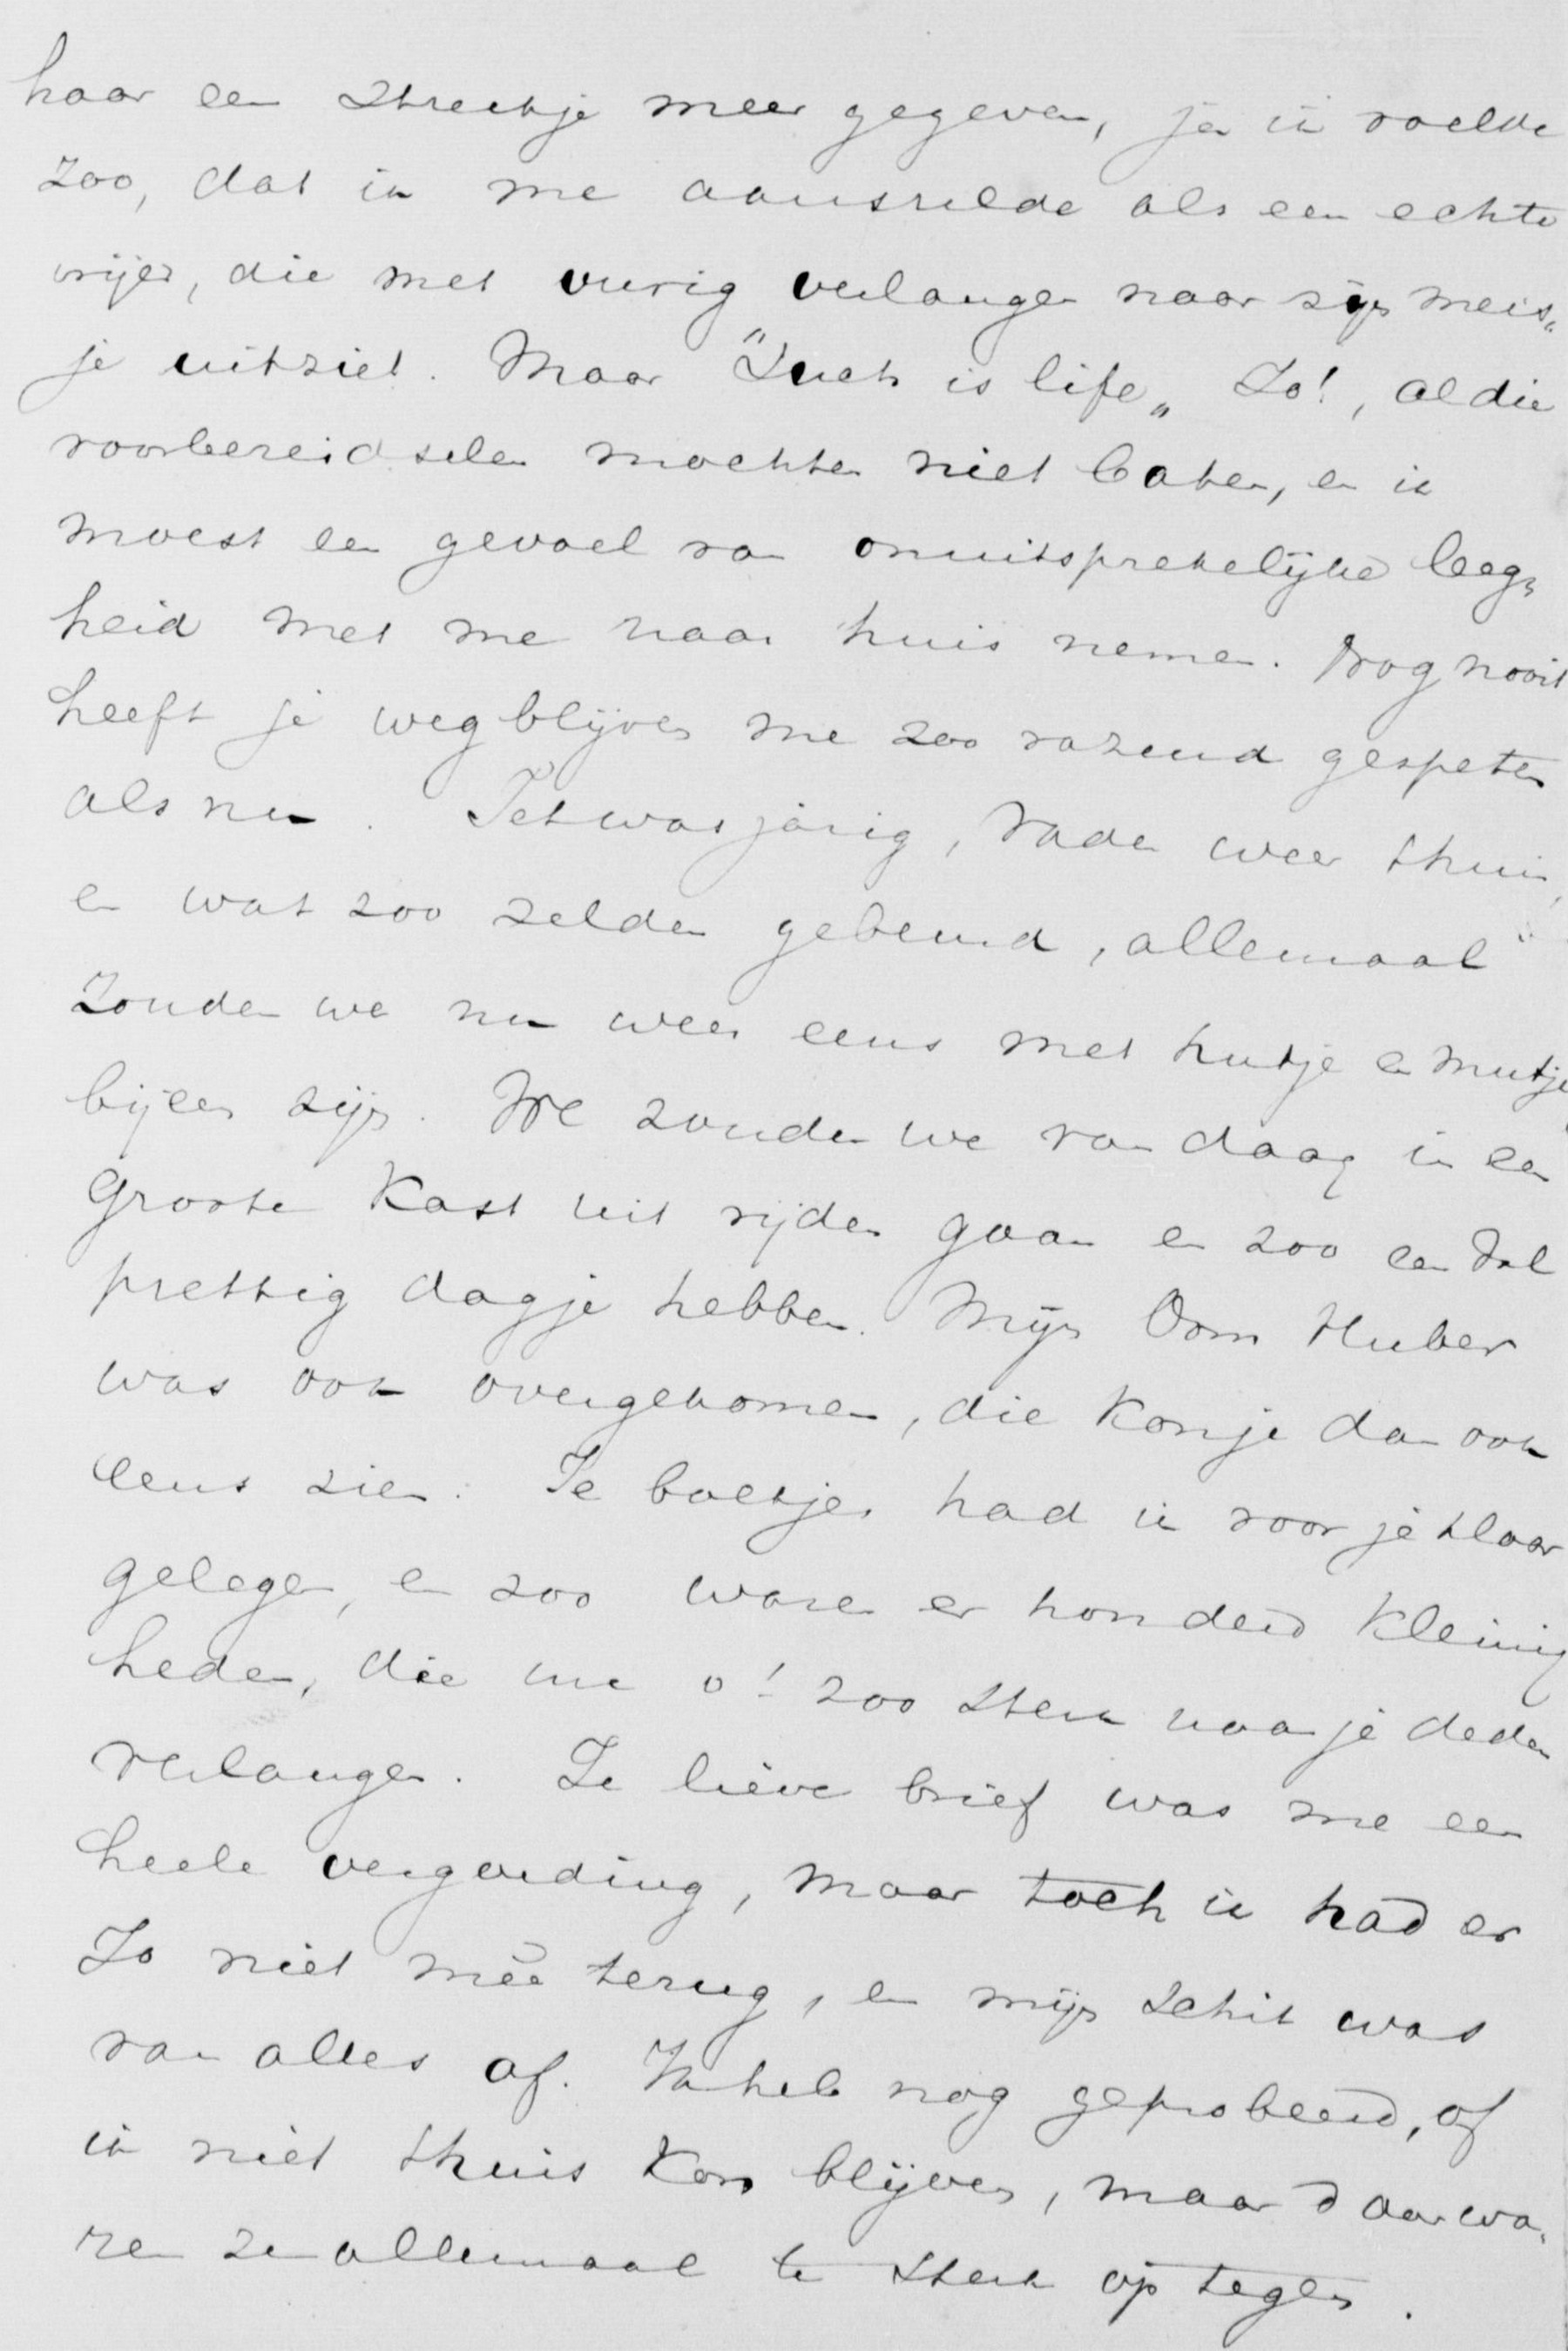 haar een streekje meer gegeven, ja ik voelde
zoo, dat ik me aanstelde als een echte
vrijer, die met vurig verlangen naar zijn meis„
je uitziet. Maar "Such is life„ Jo!, al die
voorbereidselen mochten niet baten, en ik
moest een gevoel van onuitsprekelijke leeg„
heid met me naar huis nemen. Nog nooit
heeft je wegblijven me zoo razend gespeten
als nu. Jet was jarig, Vader weer thuis,
en wat zoo zelden gebeurd, allemaal
zouden we nu weer eens met hutje en mutje
bijeen zijn. We zouden we van daag in een
groote Kast uit rijden gaan en zoo een dol
prettig dagje hebben. Mijn Oom Huber
was ook overgekomen, die kon je dan ook
eens zien. Je boekjes had ik voor je klaar
gelegen, en zoo waren er honderd kleinig
heden, die me o! zoo sterk naar je deden
verlangen. Je lieve brief was me een
heele vergoeding, maar toch ik had er
Jo niet mêe terug, en mijn schik was
van alles af. Ik heb nog geprobeerd, of
ik niet thuis kon blijven, maar daar wa„
ren ze allemaal te sterk op tegen.